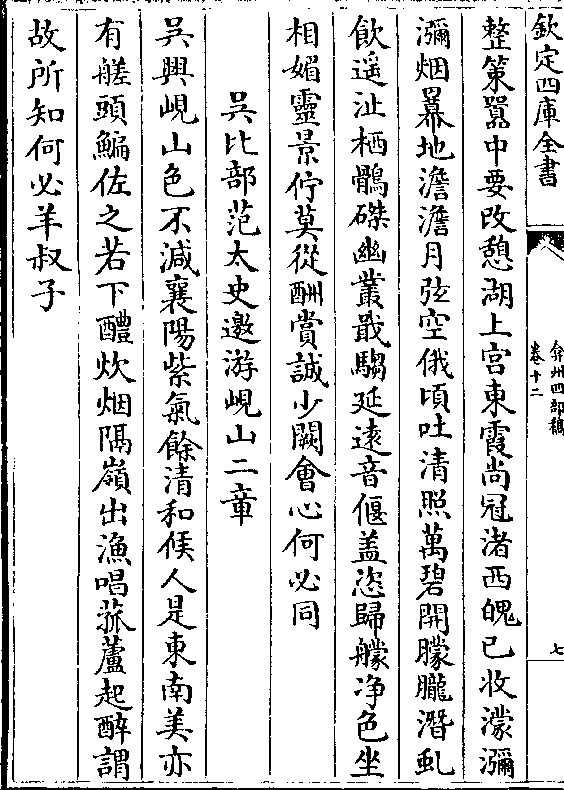 欽定四庫全書
弇州四部稿
卷十二
七
整策嚣中要改憩湖上宫東霞尚冠渚西魄已收濛瀰
瀰烟羃地澹澹月弦空俄頃吐清照萬碧開朦朧潛虬
飲遥沚栖鶻磔幽叢戢騶延遠音偃盖恣歸艨净色坐
相媚靈景佇莫從酬賞誠少闕會心何必同
吳比部范太史邀游峴山二章
吳興峴山色不減襄陽紫氣餘清和候人是東南美亦
有艖頭鯿佐之若下醴炊烟隔嶺出漁唱菰蘆起醉謂
故所知何必羊叔子